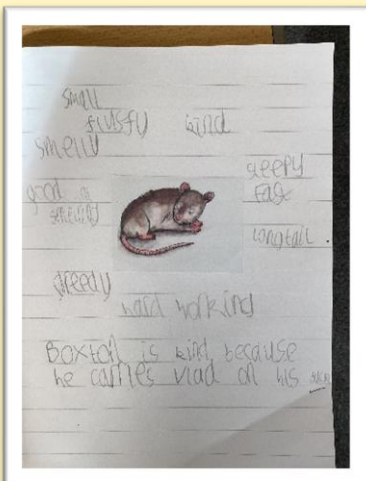 small
flusfy kind
smelly
sleepy
good a fast
smelling
longtail.
greedy
hard working
Boxtail is kind because
he carries vlad on his back